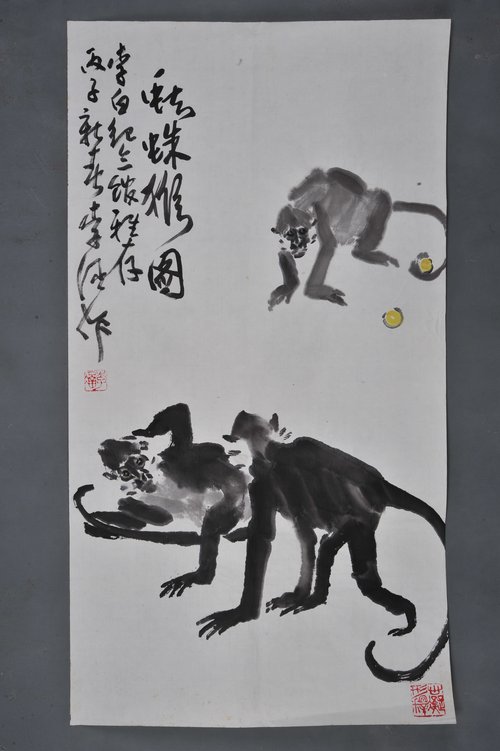 蜘蛛猴图
李白纪念馆雅存
丙子新春李
作